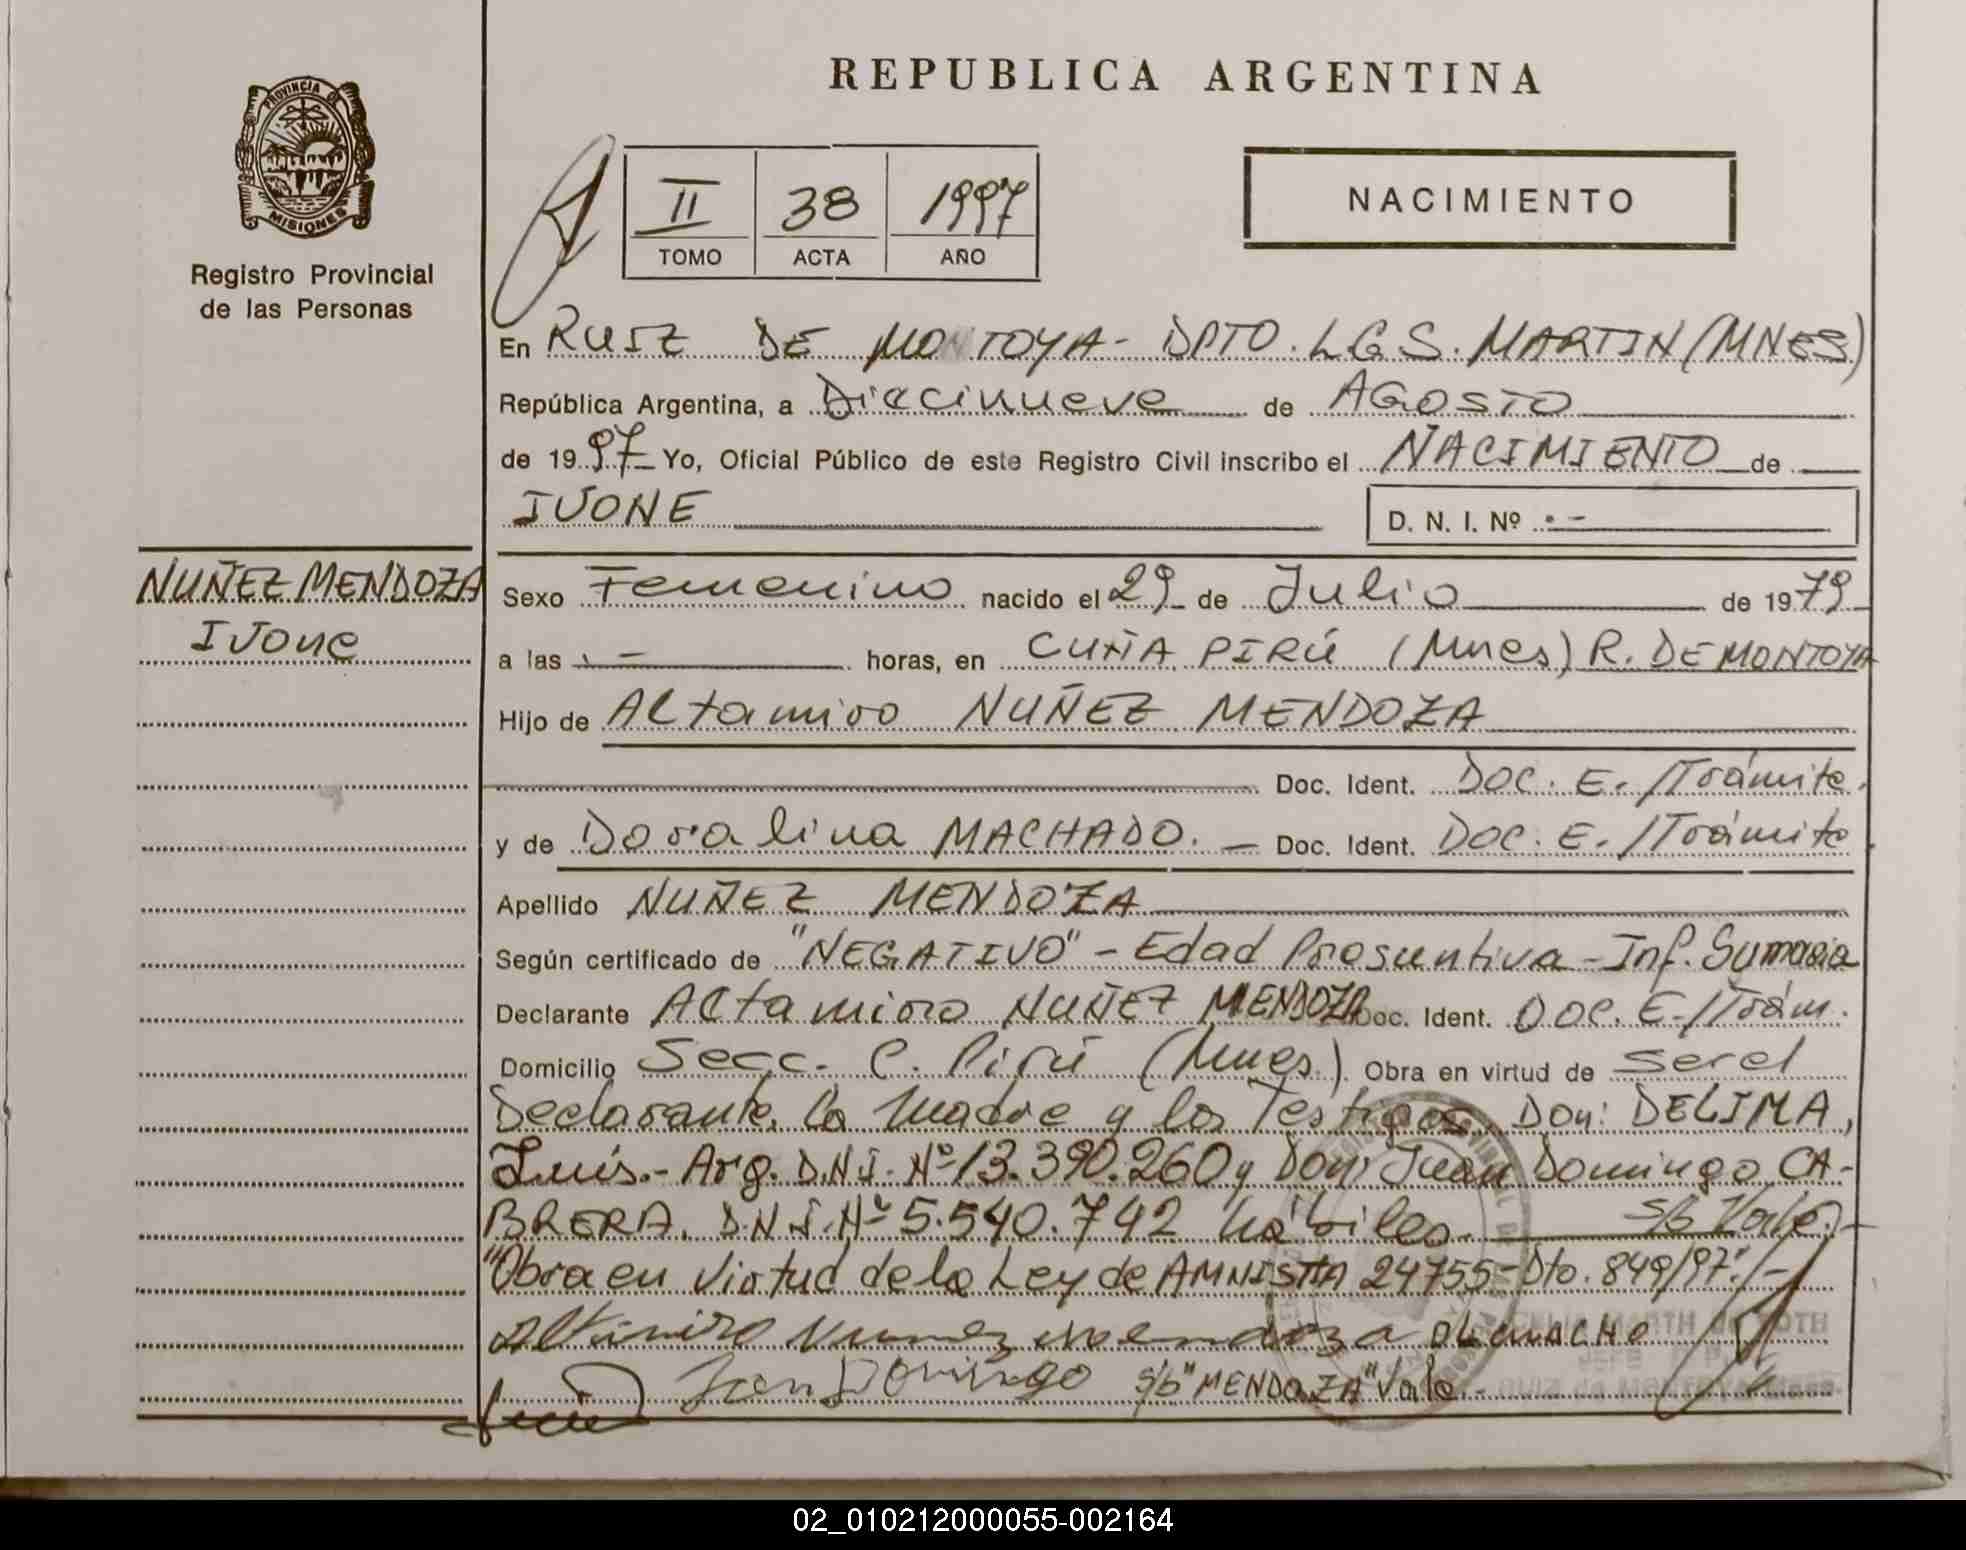 REPUBLICA ARGENTINA
PROVINCIA DE
MISIONES
Registro Provincial
de las Personas
II 38 1997
TOMO ACTA AÑO
NACIMIENTO
En RUIZ DE MONTOYA - DPTO. L.G.S. MARTIN (MNES)
República Argentina, a Diecinueve de AGOSTO
de 1997 Yo, Oficial Público de este Registro Civil inscribo el NACIMIENTO de
IVONE
D. N. I. Nº . -
NUÑEZ MENDOZA
Ivone
Sexo Femenino nacido el 29 de Julio de 1979
a las . - horas, en CUÑA PIRÚ (Mnes) R. DE MONTOYA
Hijo de Altamiro NUÑEZ MENDOZA
Doc. Ident. DOC. E./Trámite.
y de Doralina MACHADO. - Doc. Ident. DOC. E./Trámite
Apellido NUÑEZ MENDOZA
Según certificado de "NEGATIVO" - Edad Presuntiva - Inf. Sumaria
Declarante Altamiro NUÑEZ MENDOZA Doc. Ident. DOC. E./Trám.
Domicilio Secc. C. Pirú (Mnes.) Obra en virtud de ser el
Declarante, la Madre y los Testigos. Don: DELIMA,
Luís.- Arg. D.N.I. Nº 13.390.260 y Don: Juan Domingo CA-
BRERA. D.N.I. Nº 5.540.742 hábiles. S/B Vale.-
"Obra en virtud de la Ley de AMNISTIA 24755 - Dto. 849/97"./-
Altimiro Nunez Mendoza
Juan Domingo S/b "MENDOZA" Vale.-
02_010212000055-002164